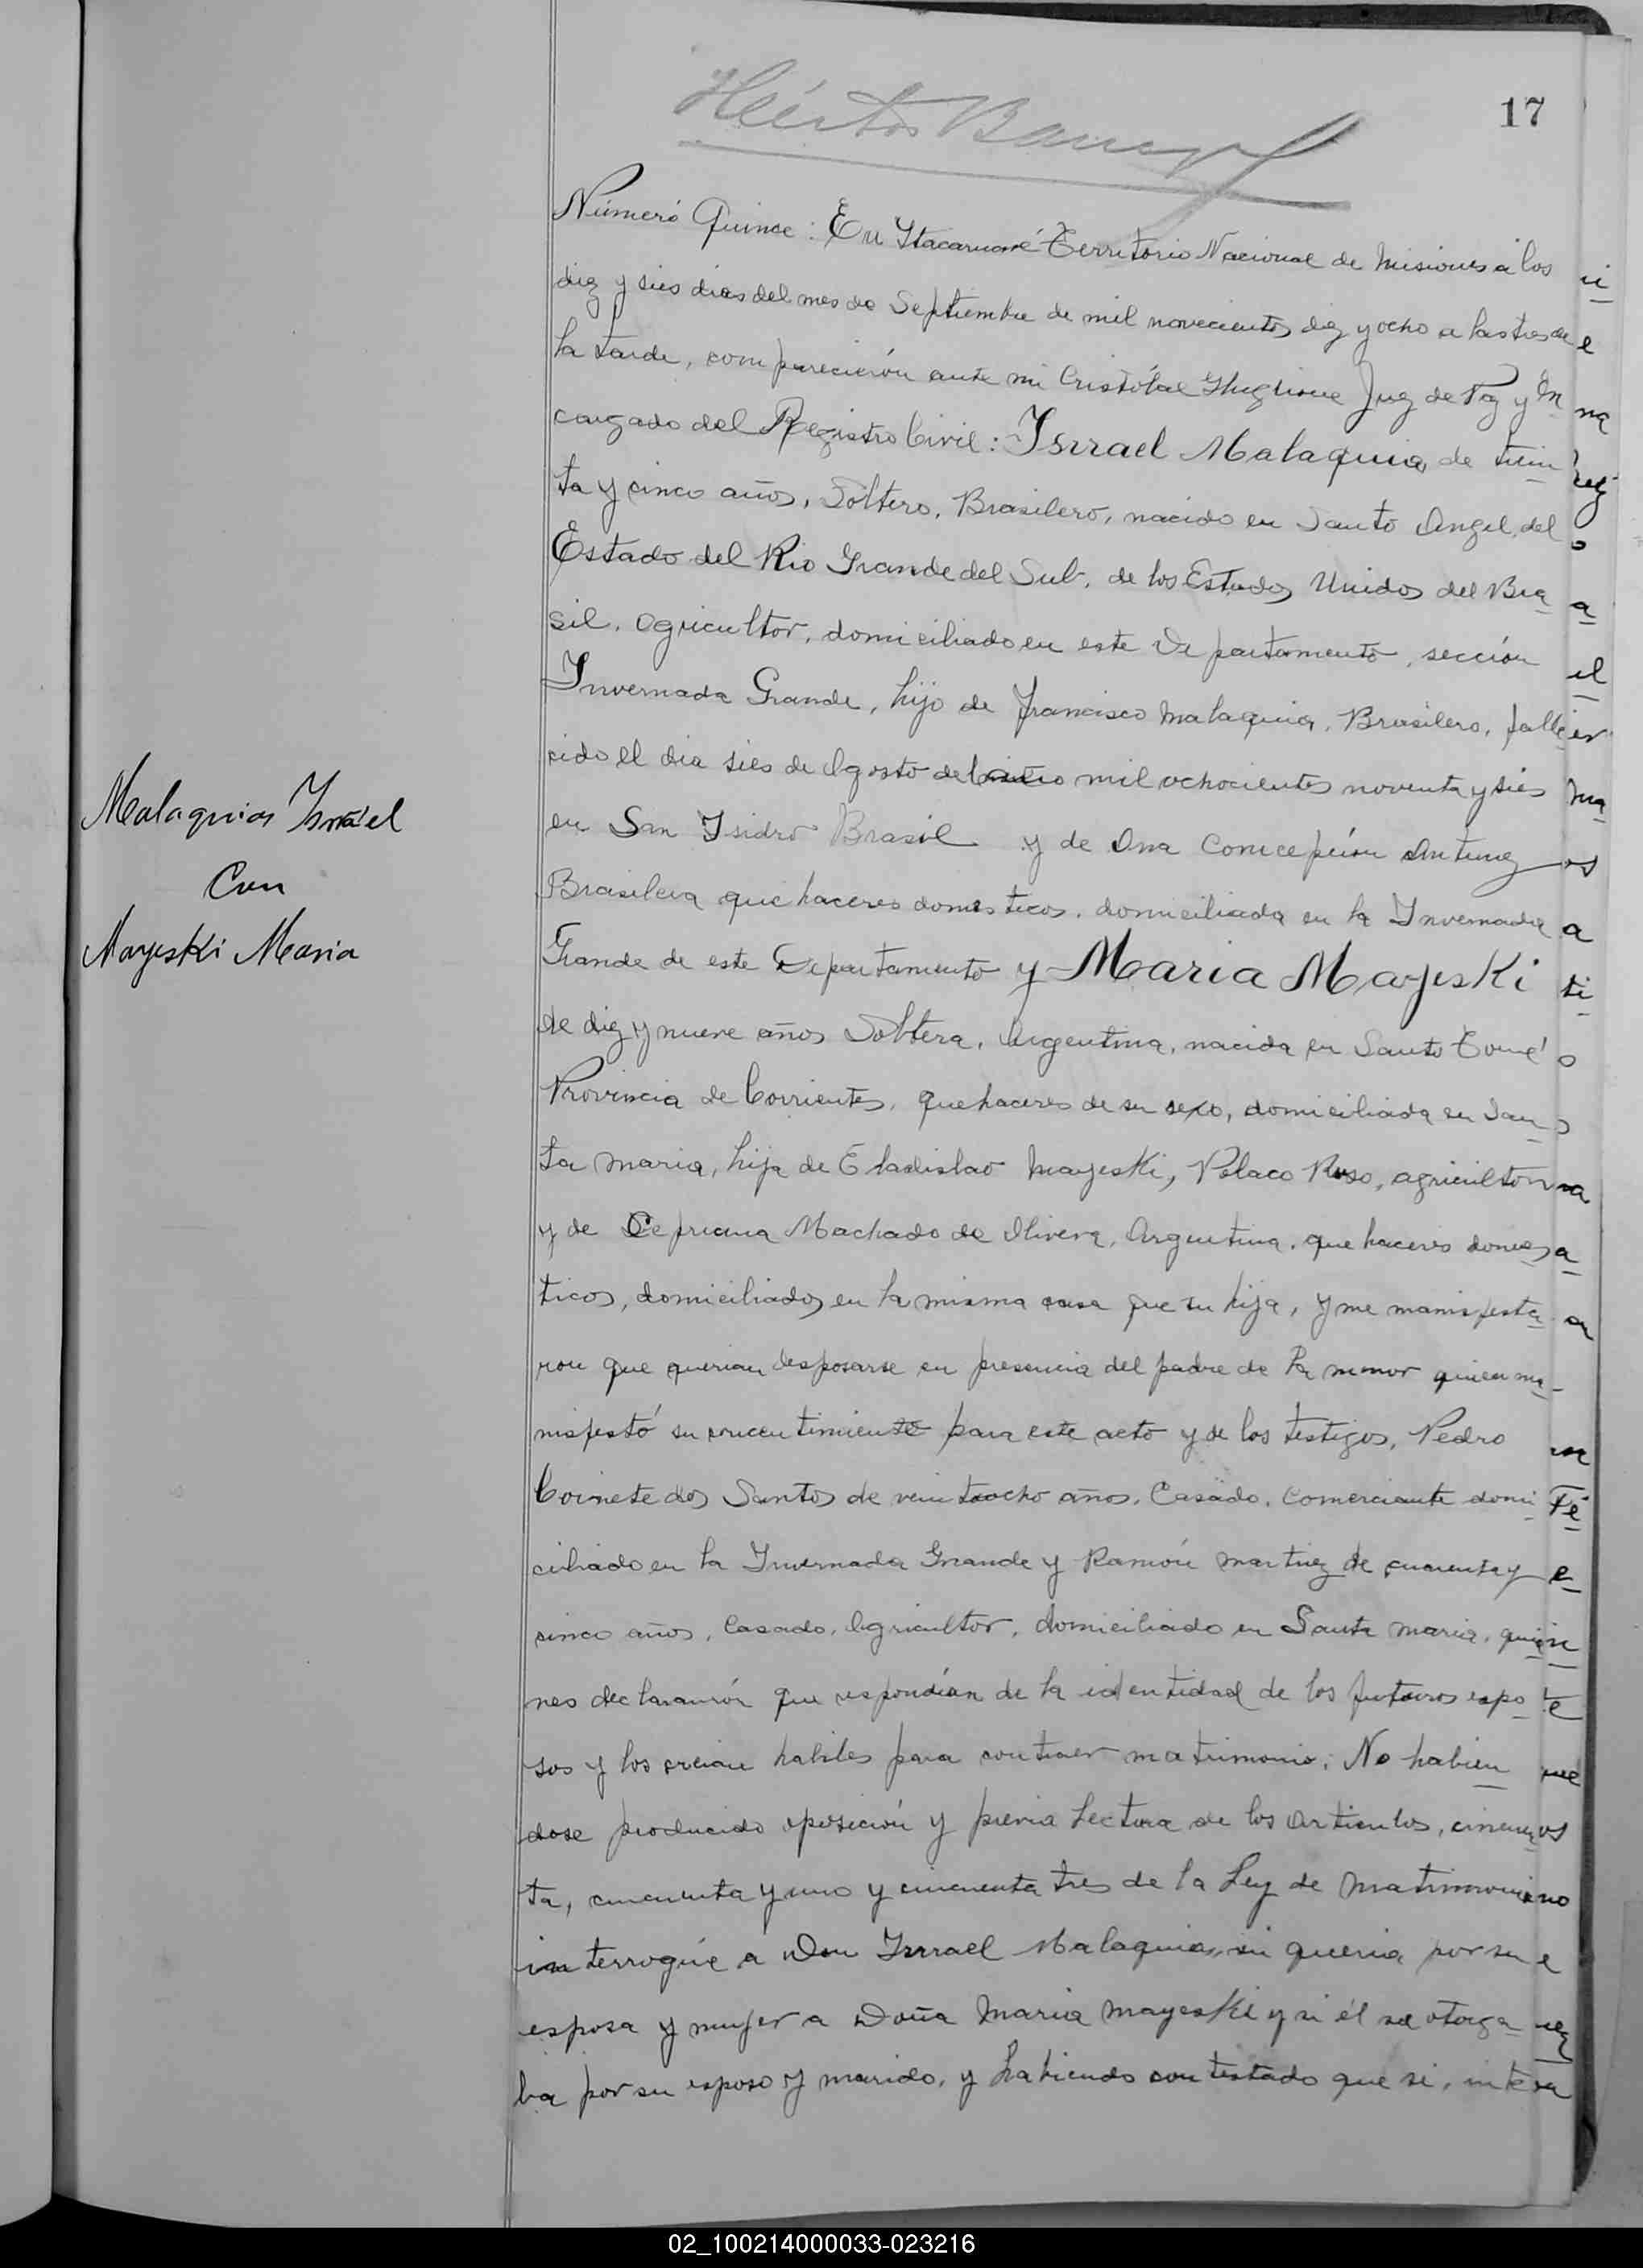 17
Número Quince: En Ytacaruaré Territorio Nacional de Misiones a los
diez y sies dias del mes de Septiembre de mil novecientos diez y ocho a las tres de
la tarde, comparecierón ante mi Cristóbal Juez de Paz y En
cargado del Registro Civil: Isrrael Malaquias, de trein
ta y cinco años, Soltero, Brasilero, nacido en Santo Angel, del
Estado del Rio Grande del Sul, de los Estados Unidos del Bra
sil, agricultor, domiciliado en este Departamento, sección
Invernada Grande, hijo de Francisco Malaquias, Brasilero, falle
cido el dia sies de Agosto del año mil ochocientos noventa y sies
en San Ysidro Brasil y de Ana Concepción Antunez
Brasilera quehaceres domesticos, domiciliada en la Invernada
Grande de este Departamento y Maria Mayeski
de diez y nueve años Soltera, Argentina, nacida en Santo Tomé
Provincia de Corrientes, quehaceres de su sexo, domiciliada en San
ta maria, hija de Eladislao Mayeski, Polaco Ruso, agricultor
y de Cepriana Machado de Olivera, Argentina, que haceres domes
ticos, domiciliados en la misma casa que su hija, y me manifesta
ron que querian desposarse en presencia del padre de la menor quien ma
nifestó su concentimiento para este acto y de los testigos, Pedro
dos Santos de veintiocho años, Casado, Comerciante domi
ciliado en la Invernada Grande y Ramón Martinez de cuarenta y
cinco años, Casado, Agricultor, domiciliado en Santa maria, quie
nes declararón que respondían de la identidad de los futuros espo
sos y los creian habiles para contraer matrimonio. No habien
dose producido oposición y previa Lectura de los articulos, cincuen
ta, cincuenta y uno y cincuenta tres de la Ley de Matrimonio
interrogúe a Don Isrrael Malaquias, si queria por su
esposa y mujer a Doña Maria Mayeski y si él se otorga
ba por su esposo y marido, y habiendo contestado que si, inte
Malaquias Ismael
Con
Mayeski Maria
02_100214000033-023216